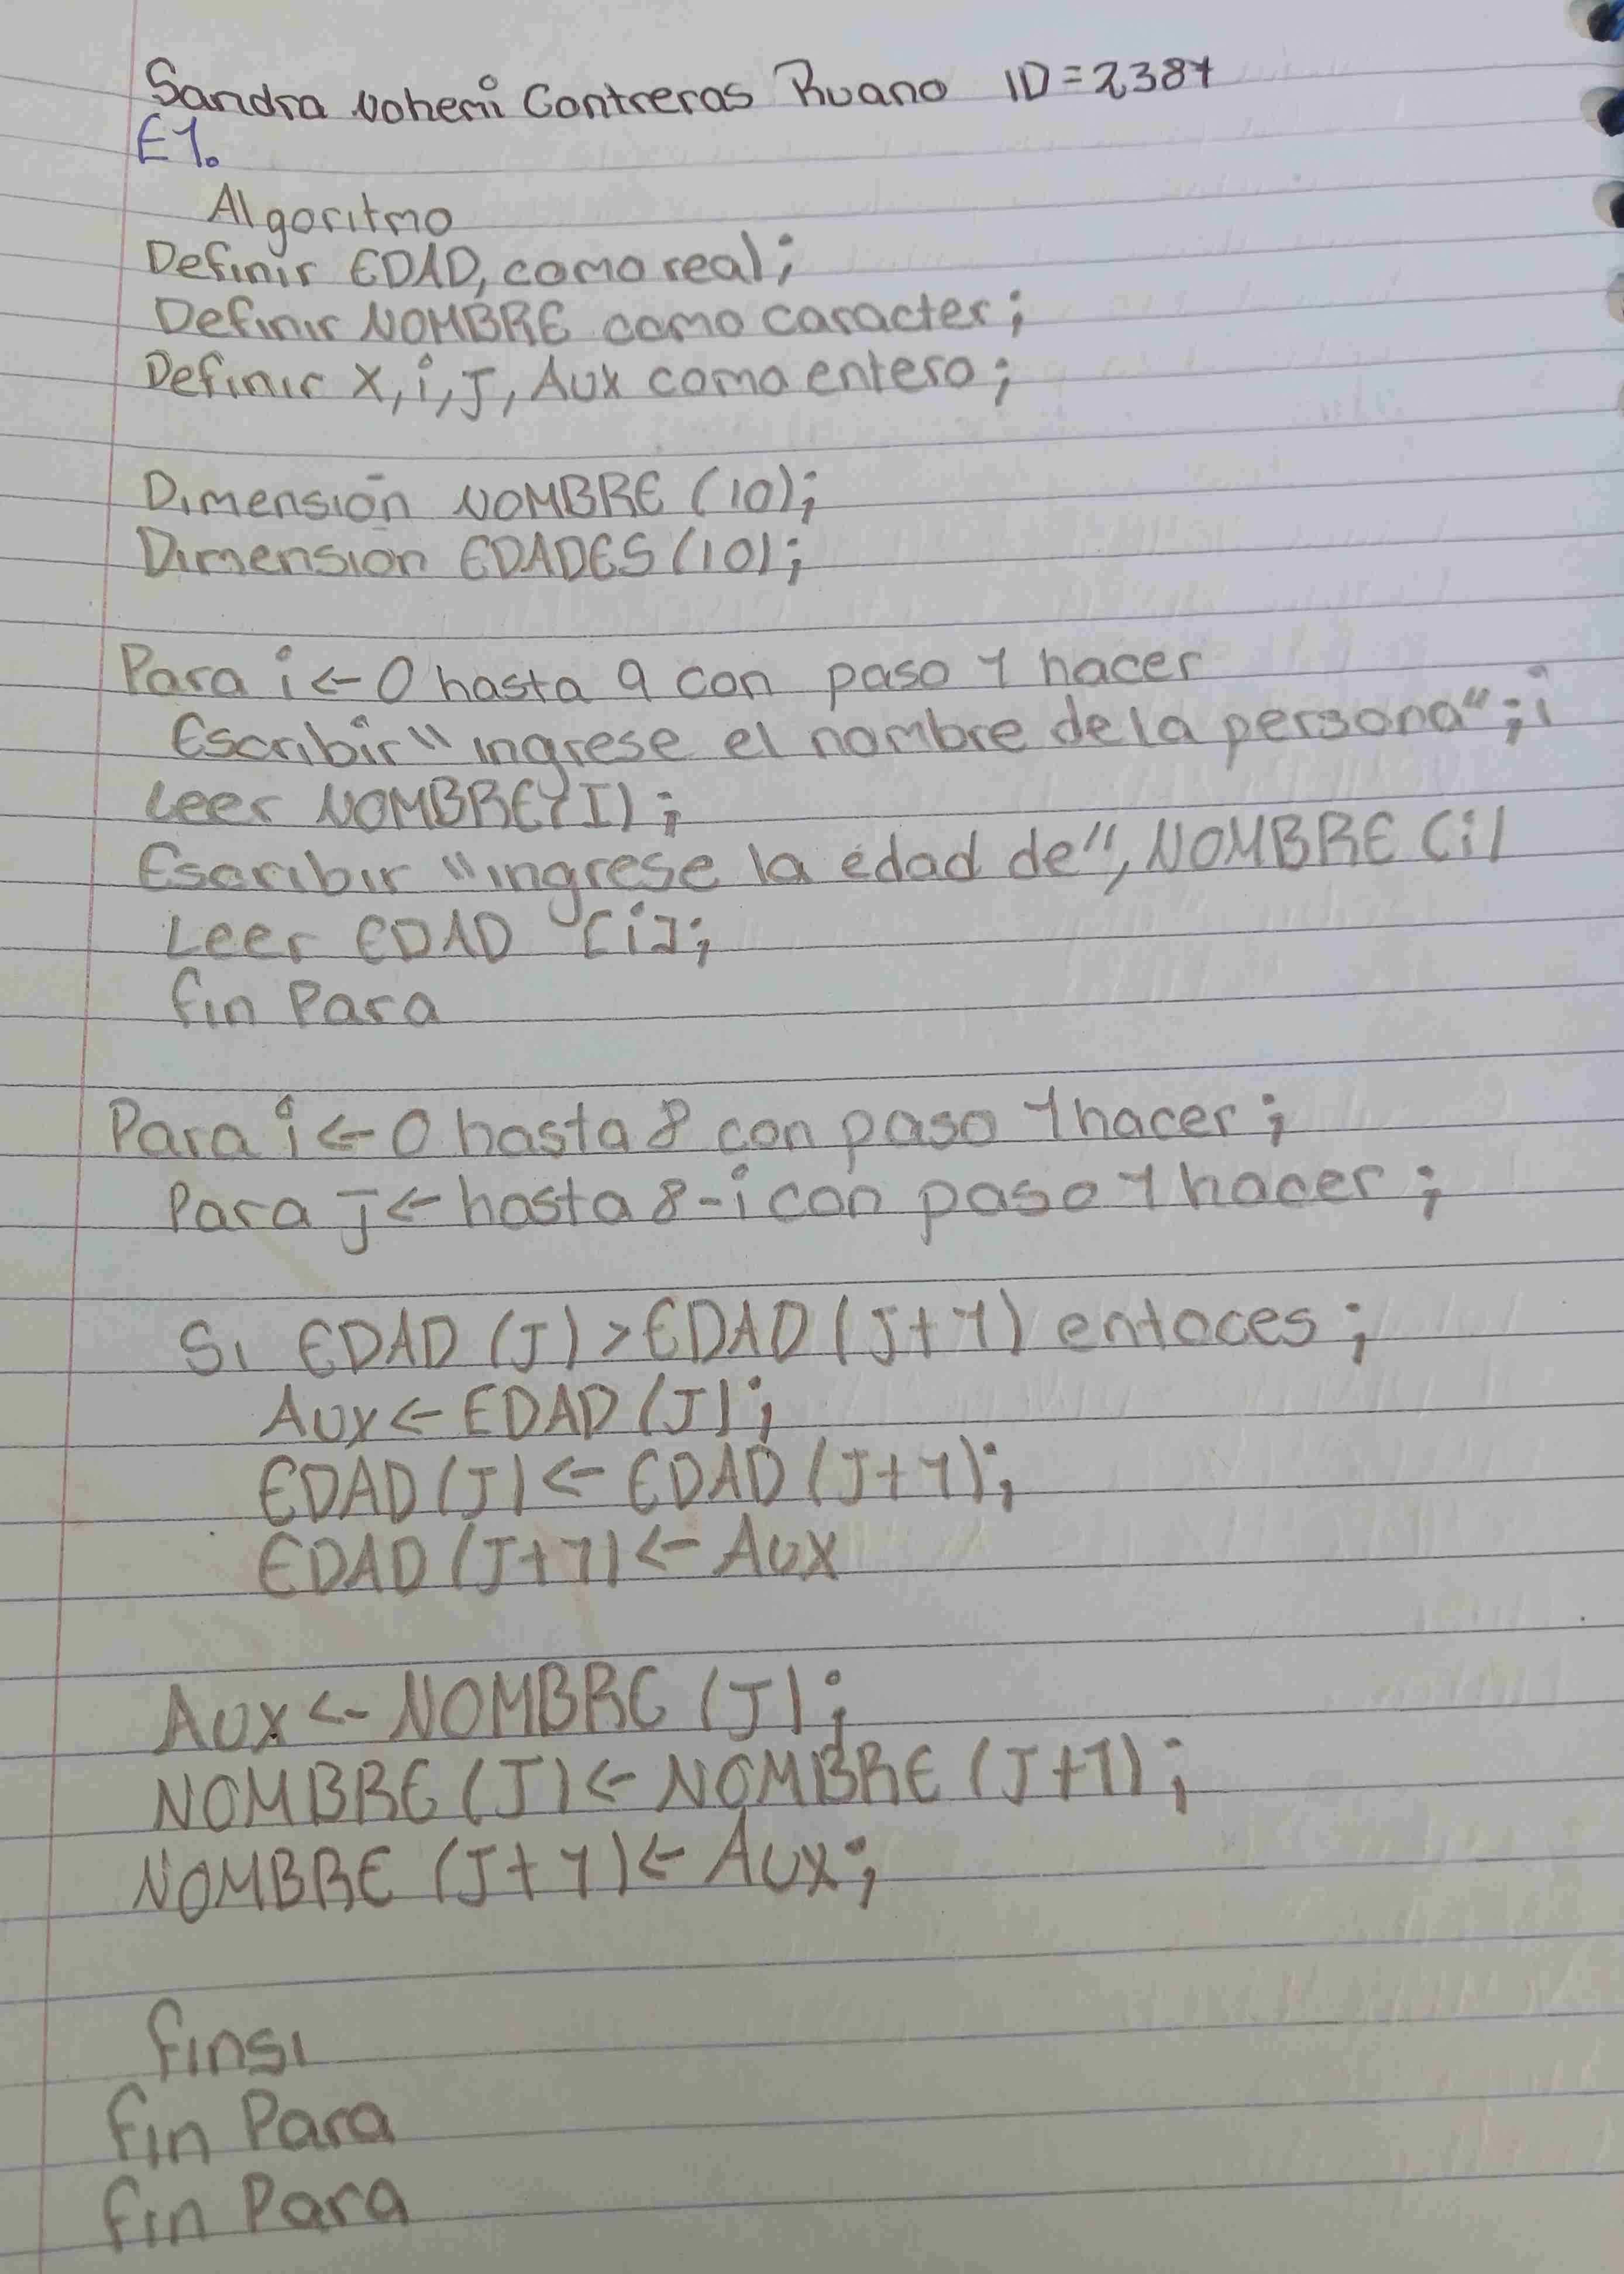 Sandra Nohemi Contreras Ruano ID=2387
E1.
Algoritmo
Definir EDAD, como real;
Definir NOMBRE como caracter;
Definir X, i, J, Aux como entero;
Dimensión NOMBRE (10);
Dimensión EDADES (10);
Para i <- 0 hasta 9 con paso 1 hacer
Escribir "ingrese el nombre de la persona"; i
Leer NOMBRE(I);
Escribir "ingrese la edad de", NOMBRE (i)
Leer EDAD [i];
fin Para
Para i <- 0 hasta 8 con paso 1 hacer;
Para J <- hasta 8-i con paso 1 hacer;
Si EDAD (J) > EDAD (J+1) entoces;
Aux <- EDAD (J);
EDAD (J) <- EDAD (J+1);
EDAD (J+1) <- Aux
Aux <- NOMBRE (J);
NOMBRE (J) <- NOMBRE (J+1);
NOMBRE (J+1) <- Aux;
finsi
fin Para
fin Para